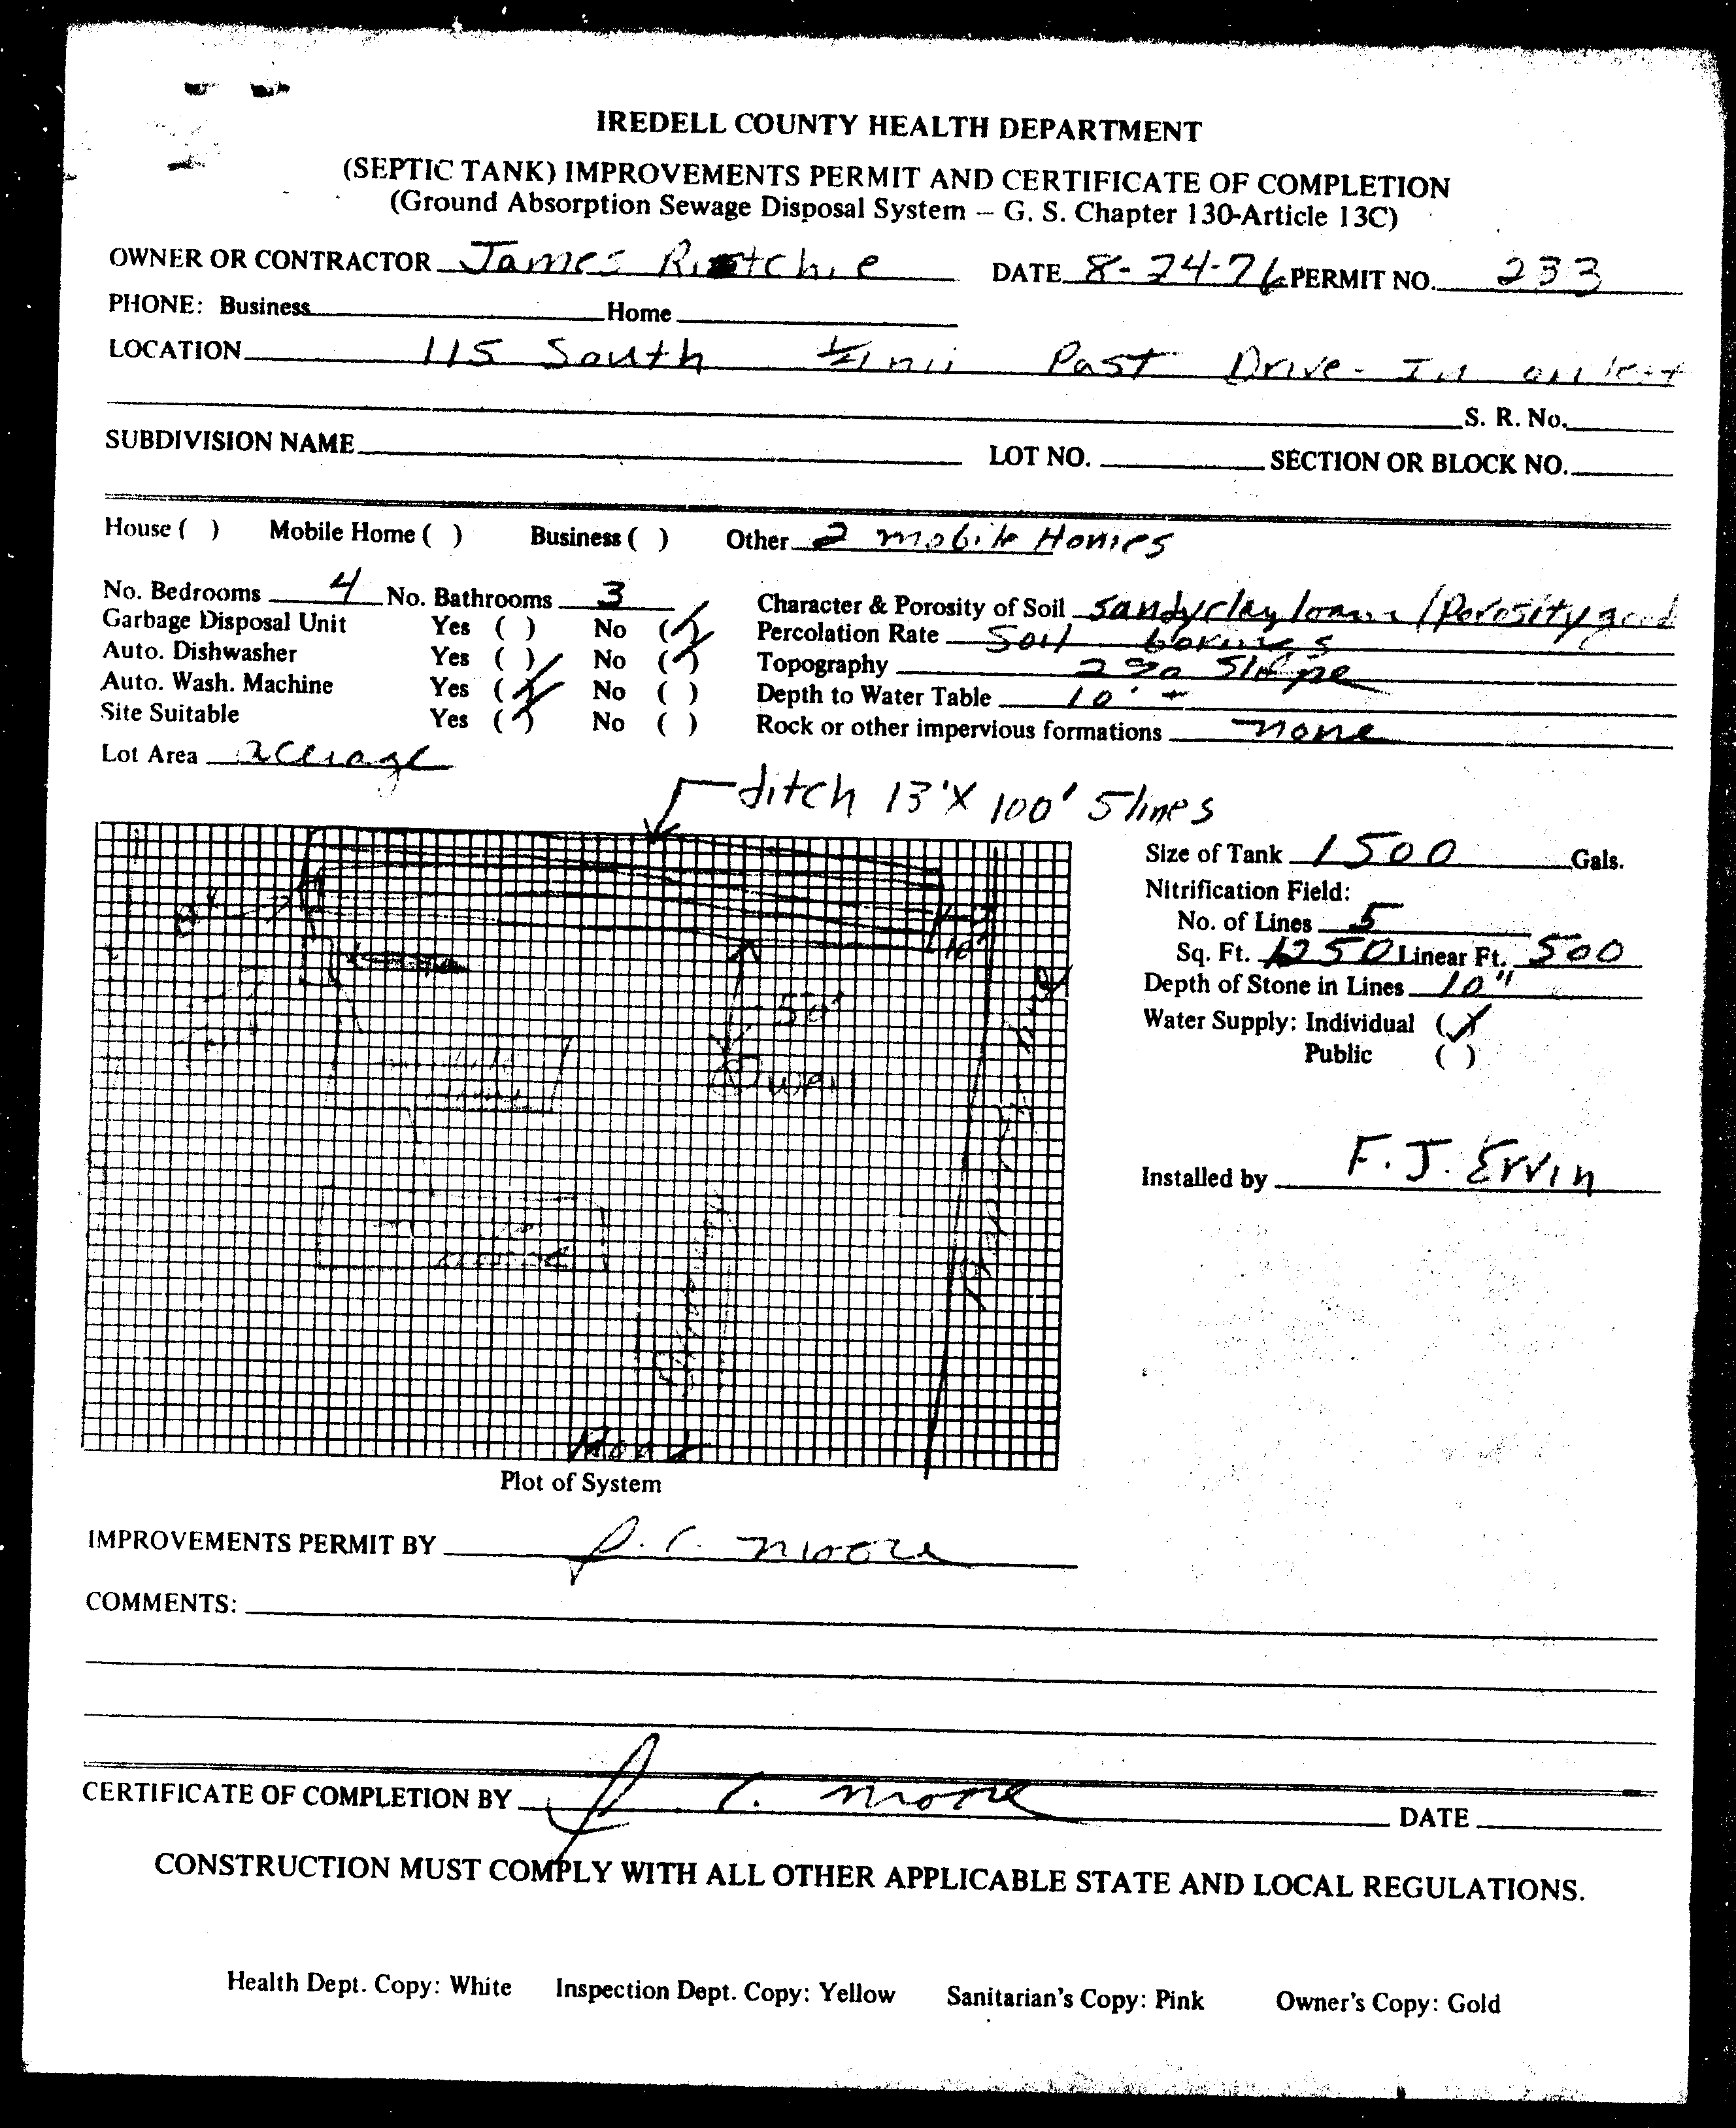 IREDELL COUNTY HEALTH DEPARTMENT
(SEPTIC TANK) IMPROVEMENTS PERMIT AND CERTIFICATE OF COMPLETION
(Ground Absorption Sewage Disposal System – G. S. Chapter 130-Article 13C)
OWNER OR CONTRACTOR James Ritchie DATE 8-24-76 PERMIT NO. 233
PHONE: Business Home
LOCATION 115 South Past Drive-In on left
S. R. No.
SUBDIVISION NAME LOT NO. SECTION OR BLOCK NO.
House ( ) Mobile Home ( ) Business ( ) Other 2 mobile Homes
No. Bedrooms 4 No. Bathrooms 3 Character & Porosity of Soil Sandy clay loam / Porosity good
Garbage Disposal Unit Yes ( ) No (✓) Percolation Rate Soil borings
Auto. Dishwasher Yes ( ) No (✓) Topography 2% Slope
Auto. Wash. Machine Yes (✓) No ( ) Depth to Water Table 10' +
Site Suitable Yes (✓) No ( ) Rock or other impervious formations none
Lot Area acerage
ditch 13'X 100' 5 lines
Size of Tank 1500 Gals.
Nitrification Field:
No. of Lines 5
Sq. Ft. 1250 Linear Ft. 500
Depth of Stone in Lines 10"
Water Supply: Individual (✓)
Public ( )
10'
50'
Well
Installed by F. J. Ervin
Road
Plot of System
IMPROVEMENTS PERMIT BY J. C. Moore
COMMENTS:
CERTIFICATE OF COMPLETION BY J. C. Moore DATE
CONSTRUCTION MUST COMPLY WITH ALL OTHER APPLICABLE STATE AND LOCAL REGULATIONS.
Health Dept. Copy: White Inspection Dept. Copy: Yellow Sanitarian's Copy: Pink Owner's Copy: Gold